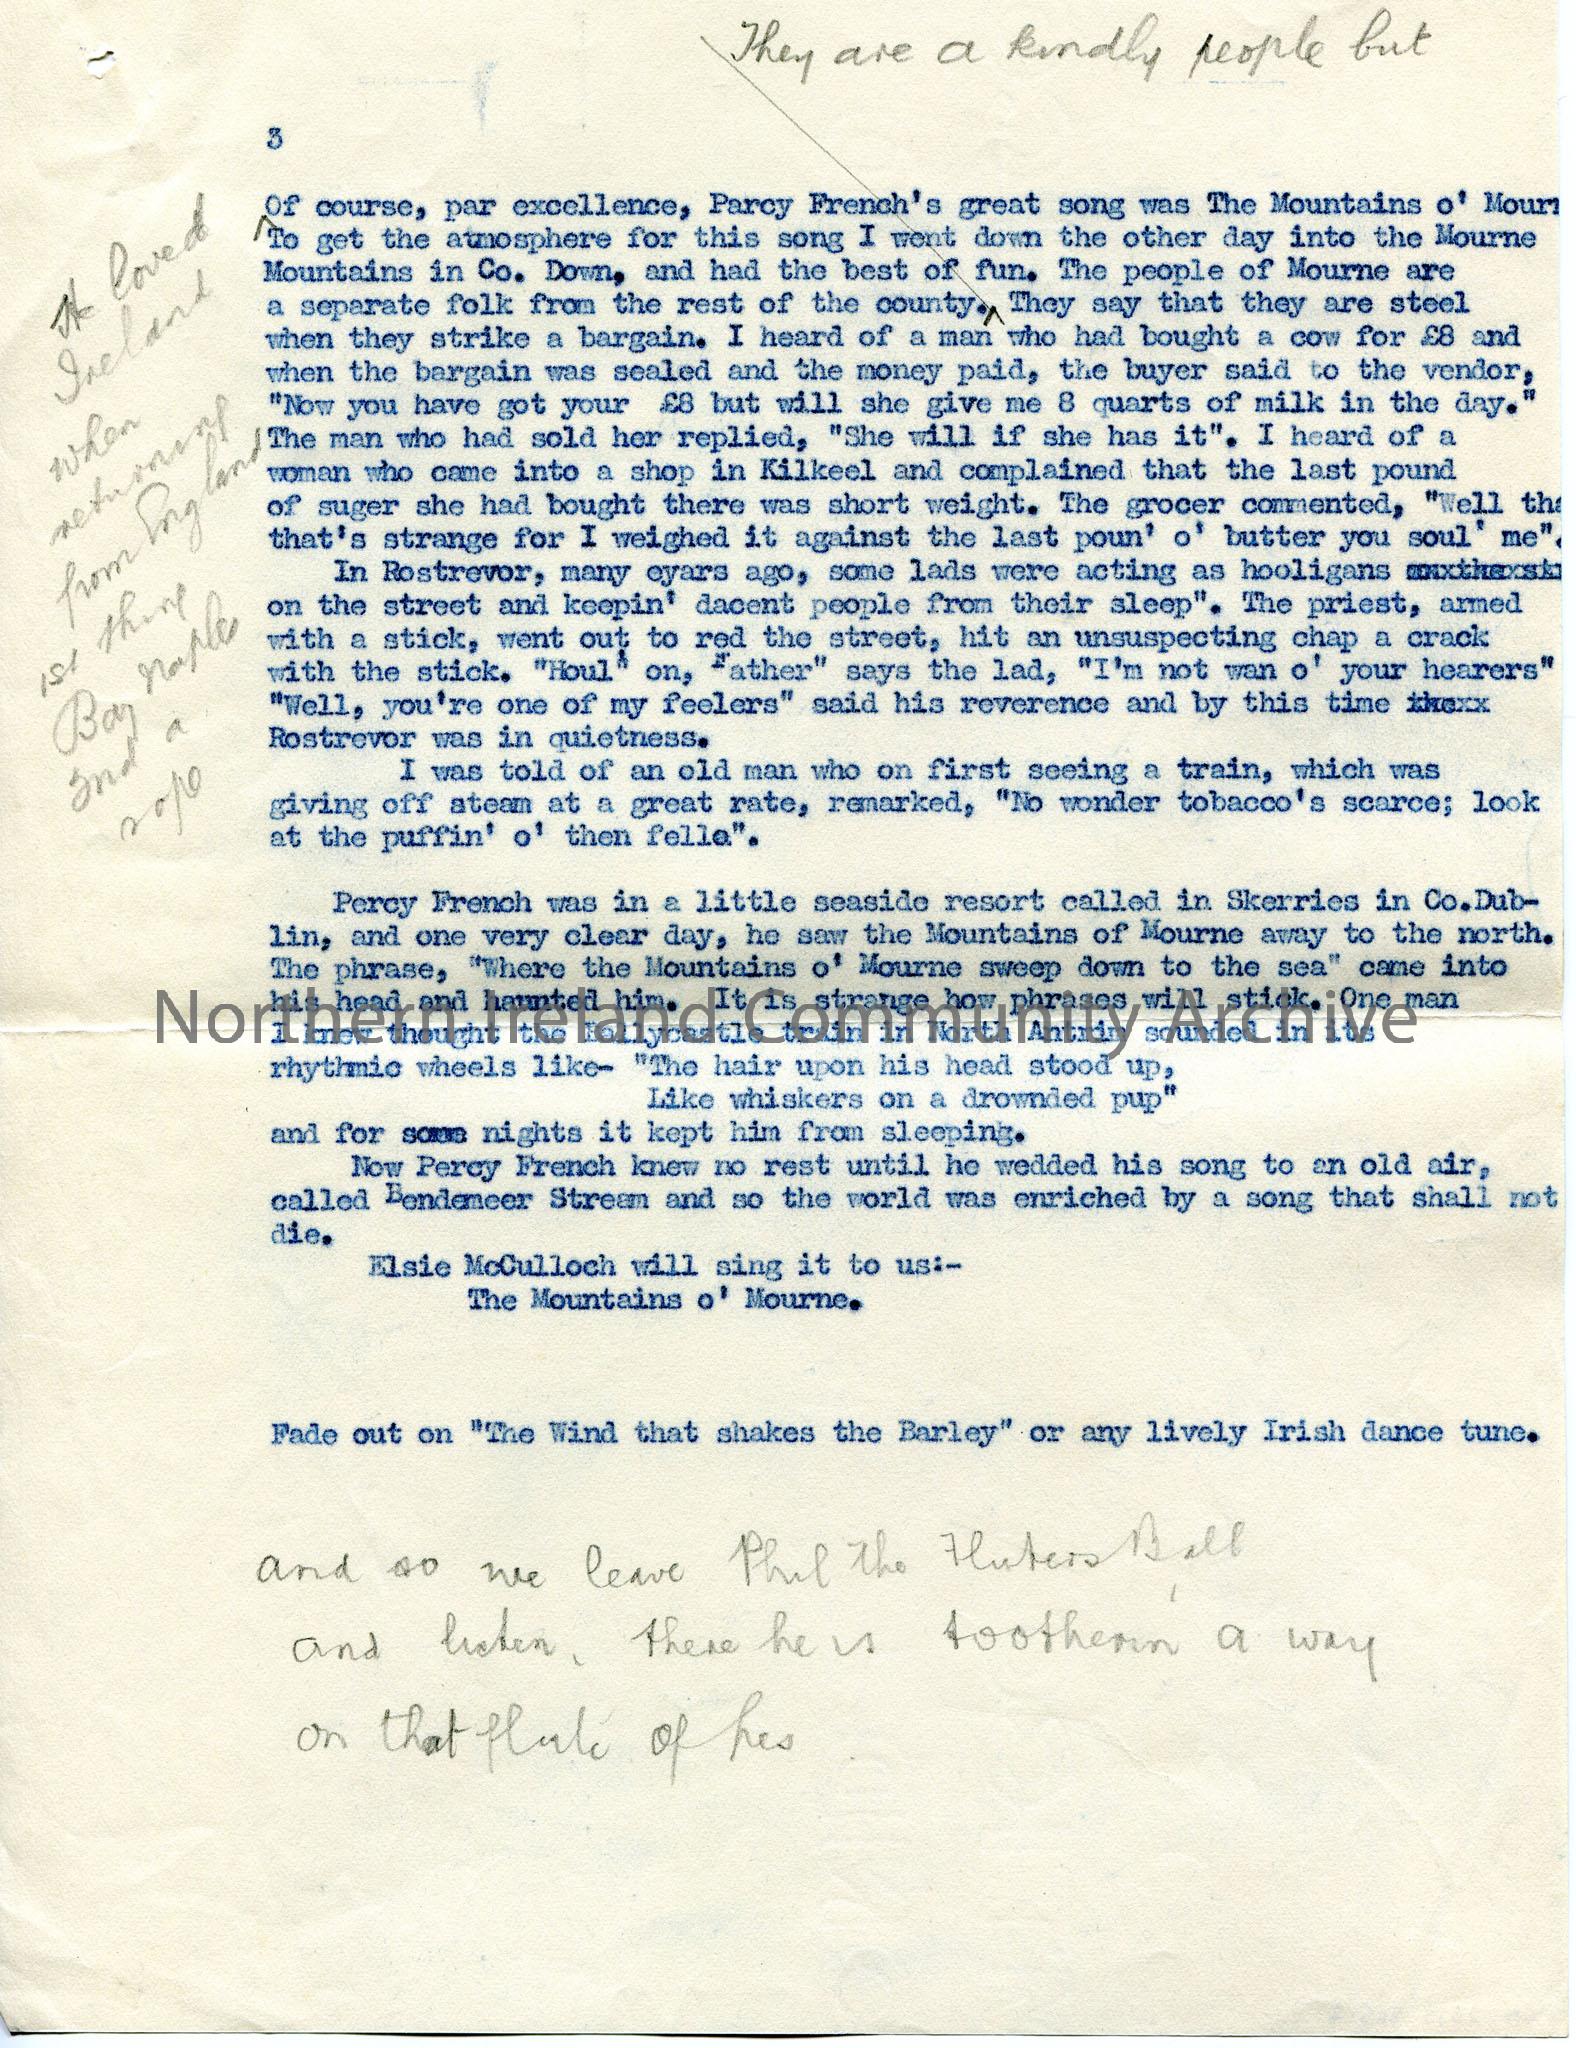 They are a kindly people but
3
Of course, par excellence, Parcy French's great song was The Mountains o' Mourn
To get the atmosphere for this song I went down the other day into the Mourne
Mountains in Co. Down, and had the best of fun. The people of Mourne are
a separate folk from the rest of the county. They say that they are steel
when they strike a bargain. I heard of a man who had bought a cow for £8 and
when the bargain was sealed and the money paid, the buyer said to the vendor,
"Now you have got your £8 but will she give me 8 quarts of milk in the day."
The man who had sold her replied, "She will if she has it". I heard of a
woman who came into a shop in Kilkeel and complained that the last pound
of suger she had bought there was short weight. The grocer commented, "Well tha
that's strange for I weighed it against the last poun' o' butter you soul' me".
In Rostrevor, many eyars ago, some lads were acting as hooligans
on the street and keepin' dacent people from their sleep". The priest, armed
with a stick, went out to red the street, hit an unsuspecting chap a crack
with the stick. "Houl' on, Father" says the lad, "I'm not wan o' your hearers"
"Well, you're one of my feelers" said his reverence and by this time
Rostrevor was in quietness.
I was told of an old man who on first seeing a train, which was
giving off steam at a great rate, remarked, "No wonder tobacco's scarce; look
at the puffin' o' then fella".
Percy French was in a little seaside resort called in Skerries in Co.Dub-
lin, and one very clear day, he saw the Mountains of Mourne away to the north.
The phrase, "Where the Mountains o' Mourne sweep down to the sea" came into
his head and haunted him. It is strange how phrases will stick. One man
I knew thought the Ballycastle train in North Antrim sounded in its
rhythmic wheels like- "The hair upon his head stood up,
Like whiskers on a drownded pup"
and for some nights it kept him from sleeping.
Now Percy French knew no rest until he wedded his song to an old air,
called Bendemeer Stream and so the world was enriched by a song that shall not
die.
Elsie McCulloch will sing it to us:-
The Mountains o' Mourne.
Fade out on "The Wind that shakes the Barley" or any lively Irish dance tune.
and so we leave Phil the Fluters Ball
and listen, there he is tootherin a way
on that flute of his
He loved
Ireland
when
returning
from England
1st thing
Bay Naples
2nd a
Northern Ireland Community Archive